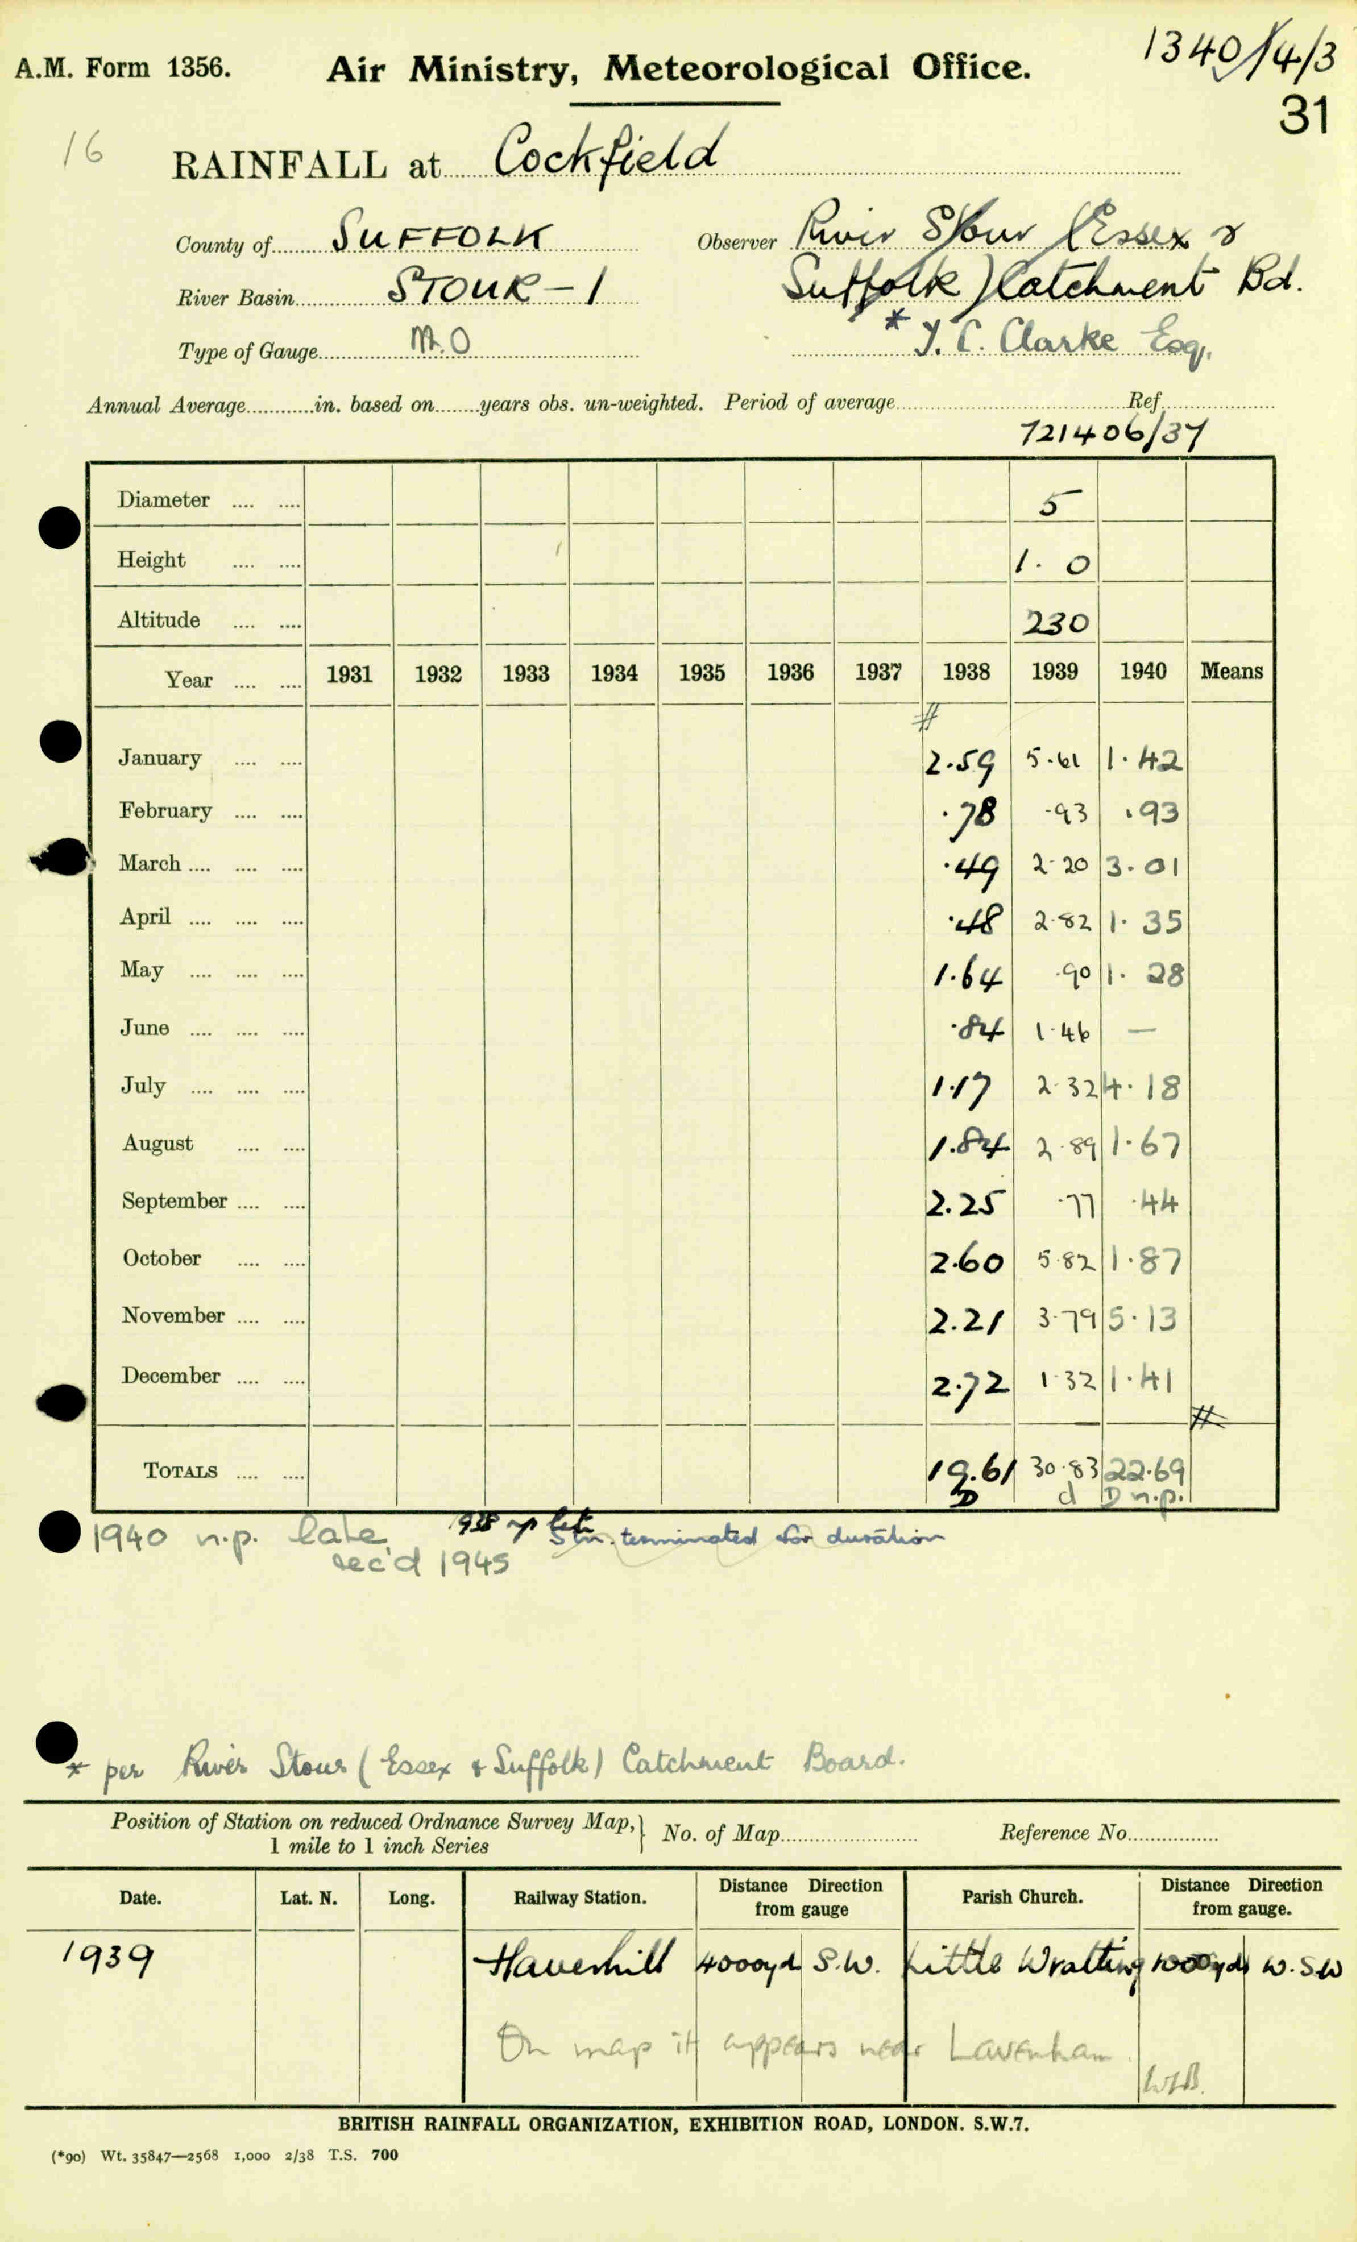 1340/14/3
A.M. Form 1356. Air Ministry, Meteorological Office.
31
16
RAINFALL at Cockfield
County of SUFFOLK Observer River Stour (Essex &
River Basin STOUR-1 Suffolk) Catchment Bd.
Type of Gauge M.O * T. C. Clarke Esq.
Annual Average in. based on years obs. un-weighted. Period of average Ref.
721406/37
Diameter 5
Height 1.0
Altitude 230
Year 1931 1932 1933 1934 1935 1936 1937 1938 1939 1940 Means
#
January 2.59 5.61 1.42
February .78 .93 .93
March .49 2.20 3.01
April .48 2.82 1.35
May 1.64 .90 1.28
June .84 1.46 —
July 1.17 2.32 4.18
August 1.84 2.89 1.67
September 2.25 .77 .44
October 2.60 5.82 1.87
November 2.21 3.79 5.13
December 2.72 1.32 1.41
#
TOTALS 19.61 30.83 22.69
D d D n.p.
1940 n.p. late 1938 np late Stn. terminated for duration
rec'd 1945
* per River Stour (Essex & Suffolk) Catchment Board.
Position of Station on reduced Ordnance Survey Map, 1 mile to 1 inch Series } No. of Map Reference No.
Date. Lat. N. Long. Railway Station. Distance Direction from gauge Parish Church. Distance Direction from gauge.
1939 Haverhill 4000yd S.W. Little Wratting 1000yds W.SW
On map it appears near Lavenham
BRITISH RAINFALL ORGANIZATION, EXHIBITION ROAD, LONDON. S.W.7.
(*90) Wt. 35847—2568 1,000 2/38 T.S. 700